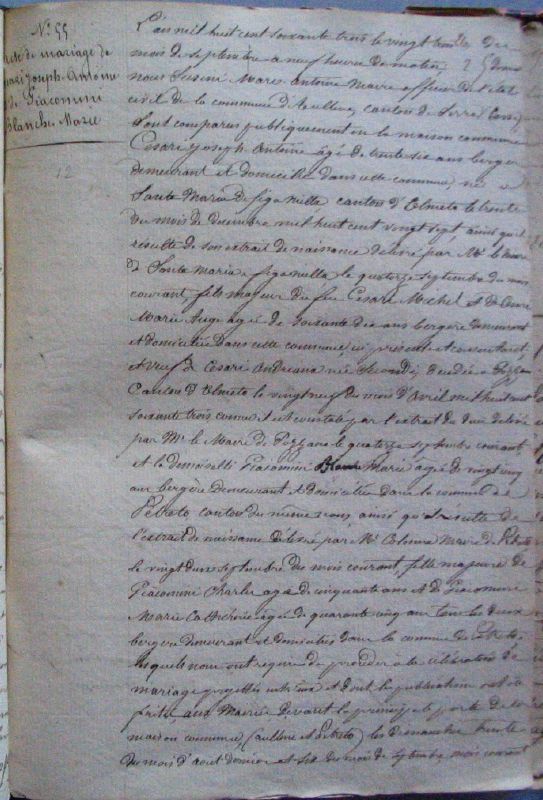 N° 55
Acte de mariage de
Cesari Joseph Antoine
et de Giacomini
Blanche Marie
12
L'an mil huit cent soixante trois le vingt trois du
mois de septembre a neuf heures du matin,
nous Susini Marie Antoine Maire officier de l'état
civil de la commune d'Aullene, canton de Serra, Corse,
Sont comparus publiquement en la maison commune
Cesari Joseph Antoine âgé de trente six ans berger
demeurant et domicilié dans cette commune, né a
Santa Maria Figaniella canton d'Olmeto le trente
du mois de décembre mil huit cent vingt sept, ainsi qu'il
résulte de son extrait de naissance délivré par Mr le Maire
de Santa Maria Figaniella le quatorze septembre du mois
courant, fils majeur du feu Cesari Michel et de
Marie Ange agée de soixante dix ans bergere demeurant
et domiciliée dans cette commune, ici presente et consentante,
et veuf de Cesari Andreana née décédée a
Canton d'Olmeto le vingt neuf du mois d'Avril mil huit cent
soixante trois comme il est constaté par l'extrait du délivré
par Mr le Maire de le quatorze septembre courant
et la demoiselle Giacomini Blanche Marie âgée de vingt cinq
ans bergère demeurant et domiciliée dans la commune de
Petreto canton du même nom, ainsi qu'il résulte de
l'extrait de naissance délivré par Mr Colonna Maire de Petreto
le vingt deux septembre du mois courant, fille majeure de
Giacomini Charles agé de cinquante ans et de Giacomini
Marie Catherine âgée de quarante cinq ans tous les deux
bergers demeurant et domiciliés dans la commune de Petreto.
lesquels nous ont requis de procéder à la célébration du
mariage projetté entre eux et dont les publications ont été
faites aux Mairies devant la principale porte de la
maison commune, (aullene et Petreto) les dimanches trente
du mois d'aout dernier et six du mois de septembre mois courant